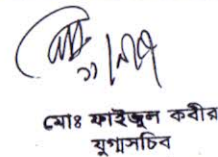 মোঃ ফাইজুল কবীর
যুগ্মসচিব